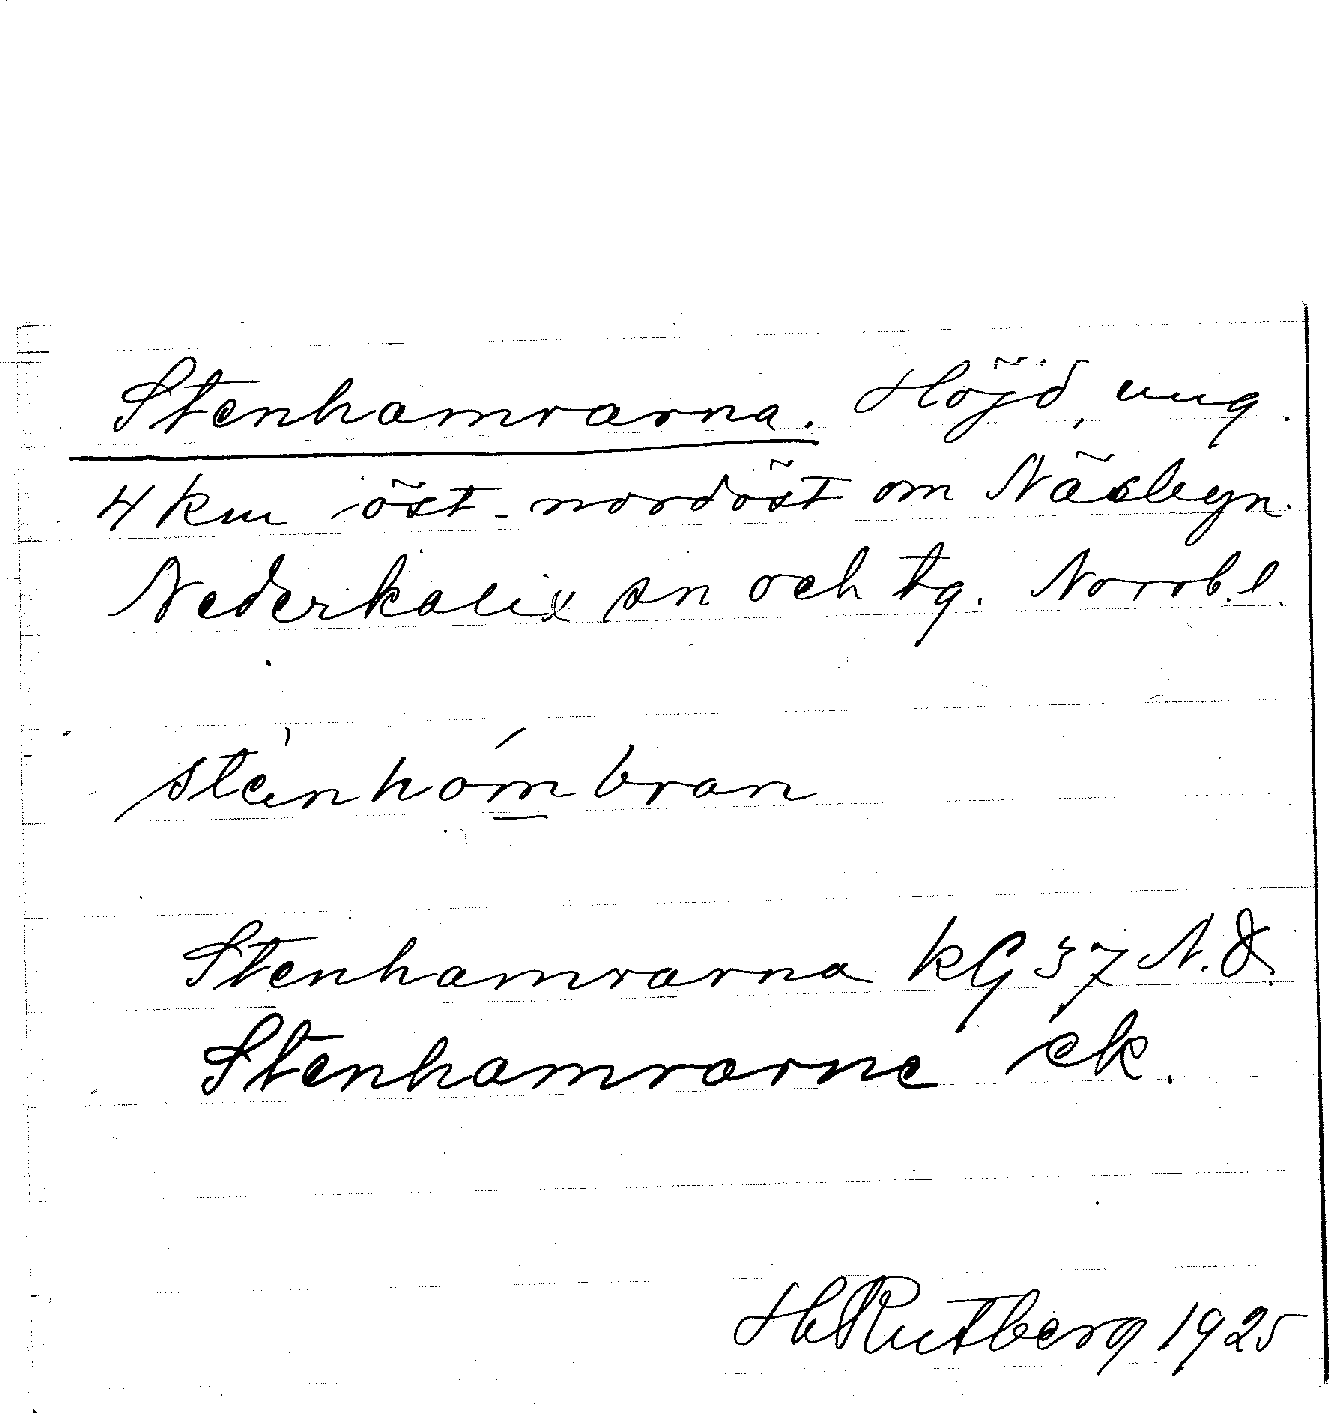 Stenhamrarna. Höjd, ung.
4 km öst-nordöst om Näsbyn.
Nederkalix sn och tg. Norrb. l.
Stenhamrarna kG 37 N.
Stenhamrarne ek.
H Rutberg 1925